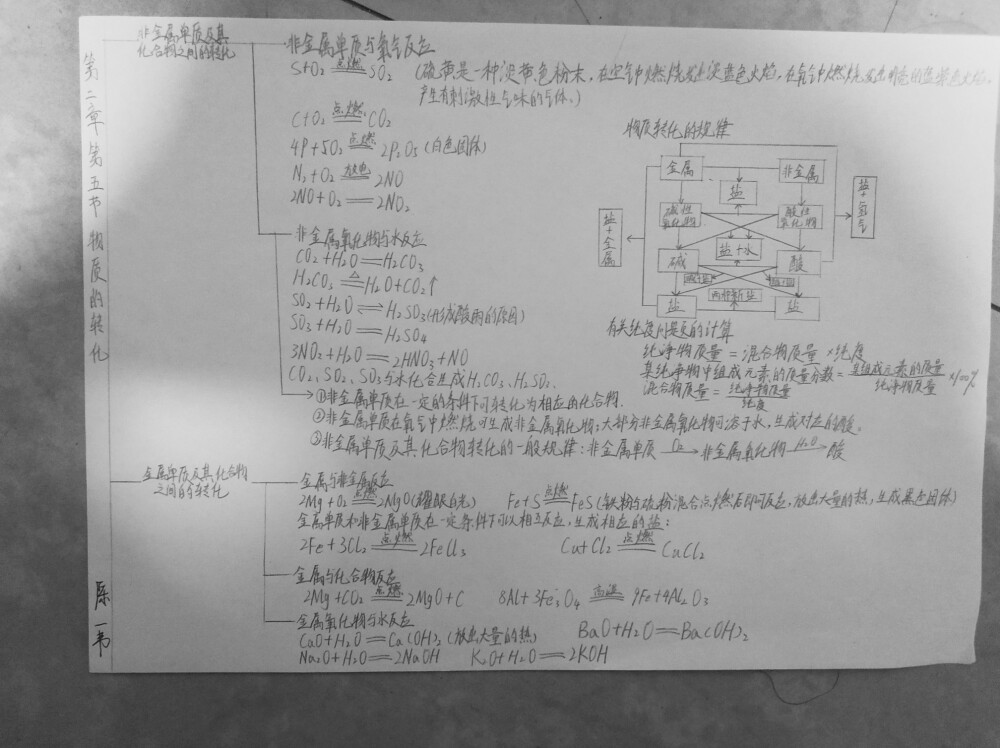 第二章第五节物质的转化
陈一韦
非金属单质及其
化合物之间的转化
非金属单质与氧气反应
S+O₂ 点燃 SO₂ (硫黄是一种淡黄色粉末,在空气中燃烧发出淡蓝色火焰,在氧气中燃烧发出明亮的蓝紫色火焰,
产生有刺激性气味的气体。)
C+O₂ 点燃 CO₂
4P+5O₂ 点燃 2P₂O₅ (白色固体)
N₂+O₂ 放电 2NO
2NO+O₂ == 2NO₂
非金属氧化物与水反应
CO₂+H₂O == H₂CO₃
H₂CO₃ △ H₂O+CO₂↑
SO₂+H₂O ⇌ H₂SO₃ (形成酸雨的原因)
SO₃+H₂O == H₂SO₄
3NO₂+H₂O == 2HNO₃+NO
CO₂、SO₂、SO₃与水化合生成H₂CO₃、H₂SO₃、
①非金属单质在一定的条件下可转化为相应的化合物.
②非金属单质在氧气中燃烧可生成非金属氧化物;大部分非金属氧化物可溶于水,生成对应的酸。
③非金属单质及其化合物转化的一般规律:非金属单质 O₂→ 非金属氧化物 H₂O→ 酸
物质转化的规律
金属
非金属
盐
碱性
氧化物
酸性
氧化物
盐+金属
盐+氢气
碱
盐+水
酸
两种新盐
盐
盐
有关纯度问题的计算
纯净物质量=混合物质量×纯度
某纯净物中组成元素的质量分数=某组成元素的质量/纯净物质量×100%
混合物质量=纯净物质量/纯度
金属单质及其化合物
之间的转化
金属与非金属反应
2Mg+O₂ 点燃 2MgO(耀眼白光) Fe+S 点燃 FeS(铁粉与硫粉混合点燃后即可反应,放出大量的热,生成黑色固体)
金属单质和非金属单质在一定条件下可以相互反应,生成相应的盐:
2Fe+3Cl₂ 点燃 2FeCl₃ Cu+Cl₂ 点燃 CuCl₂
金属与化合物反应
2Mg+CO₂ 点燃 2MgO+C 8Al+3Fe₃O₄ 高温 9Fe+4Al₂O₃
金属氧化物与水反应
CaO+H₂O == Ca(OH)₂ (放出大量的热) BaO+H₂O == Ba(OH)₂
Na₂O+H₂O == 2NaOH K₂O+H₂O == 2KOH